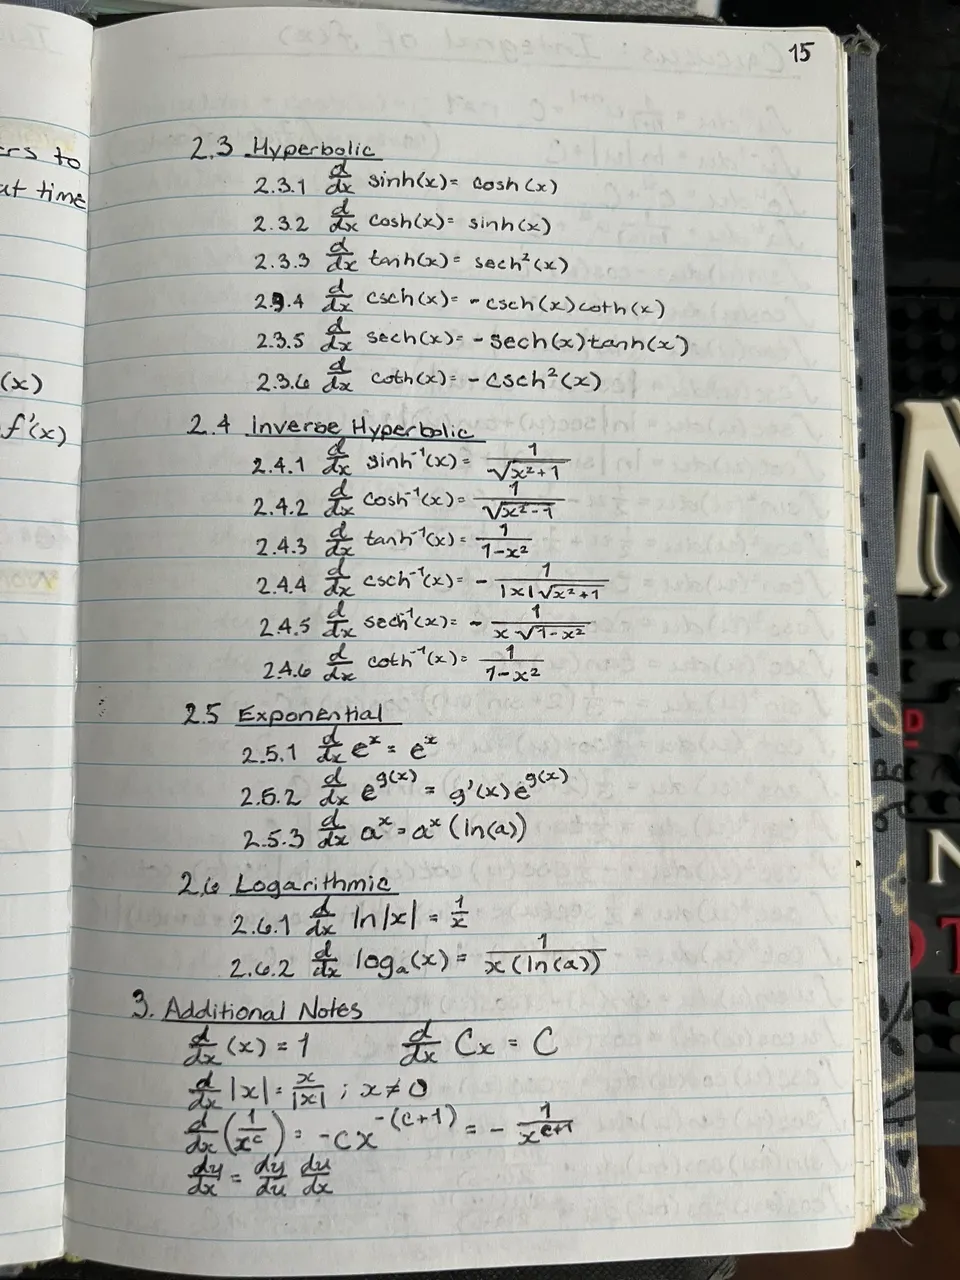 15
2.3 Hyperbolic
2.3.1 d/dx sinh(x) = cosh(x)
2.3.2 d/dx cosh(x) = sinh(x)
2.3.3 d/dx tanh(x) = sech²(x)
2.3.4 d/dx csch(x) = -csch(x)coth(x)
2.3.5 d/dx sech(x) = -sech(x)tanh(x)
2.3.6 d/dx coth(x) = -csch²(x)
2.4 Inverse Hyperbolic
2.4.1 d/dx sinh⁻¹(x) = 1/√(x²+1)
2.4.2 d/dx cosh⁻¹(x) = 1/√(x²-1)
2.4.3 d/dx tanh⁻¹(x) = 1/(1-x²)
2.4.4 d/dx csch⁻¹(x) = - 1/(|x|√(x²+1))
2.4.5 d/dx sech⁻¹(x) = - 1/(x√(1-x²))
2.4.6 d/dx coth⁻¹(x) = 1/(1-x²)
2.5 Exponential
2.5.1 d/dx eˣ = eˣ
2.5.2 d/dx e^g(x) = g'(x)e^g(x)
2.5.3 d/dx aˣ = aˣ(ln(a))
2.6 Logarithmic
2.6.1 d/dx ln|x| = 1/x
2.6.2 d/dx logₐ(x) = 1/(x(ln(a)))
3. Additional Notes
d/dx (x) = 1 d/dx Cx = C
d/dx |x| = x/|x| ; x ≠ 0
d/dx (1/x^c) = -cx^-(c+1) = - 1/x^(c+1)
dy/dx = dy/du du/dx
ers to
at time
(x)
f'(x)
N